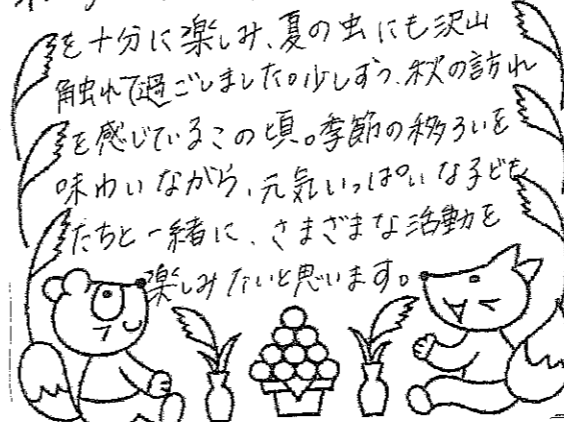 を十分に楽しみ、夏の虫にも沢山
触れて過ごしました。少しずつ、秋の訪れ
を感じているこの頃。季節の移ろいを
味わいながら、元気いっぱいな子ども
たちと一緒に、さまざまな活動を
楽しみたいと思います。